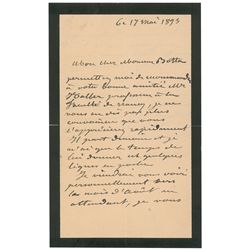 Ce 17 Mai 1893
Mon cher Monsieur
permettez moi de recommander
à votre bonne amitié Mr
professeur à la
faculté de Nancy, je ne
vous en dis pas plus
convaincu que vous
l'apprécierez rapidement
Il part demain et je
n'ai que le temps de
lui donner ces quelques
lignes en poche
Je viendrai vous voir
personnellement
les mois d'Août en
attendant, je vous